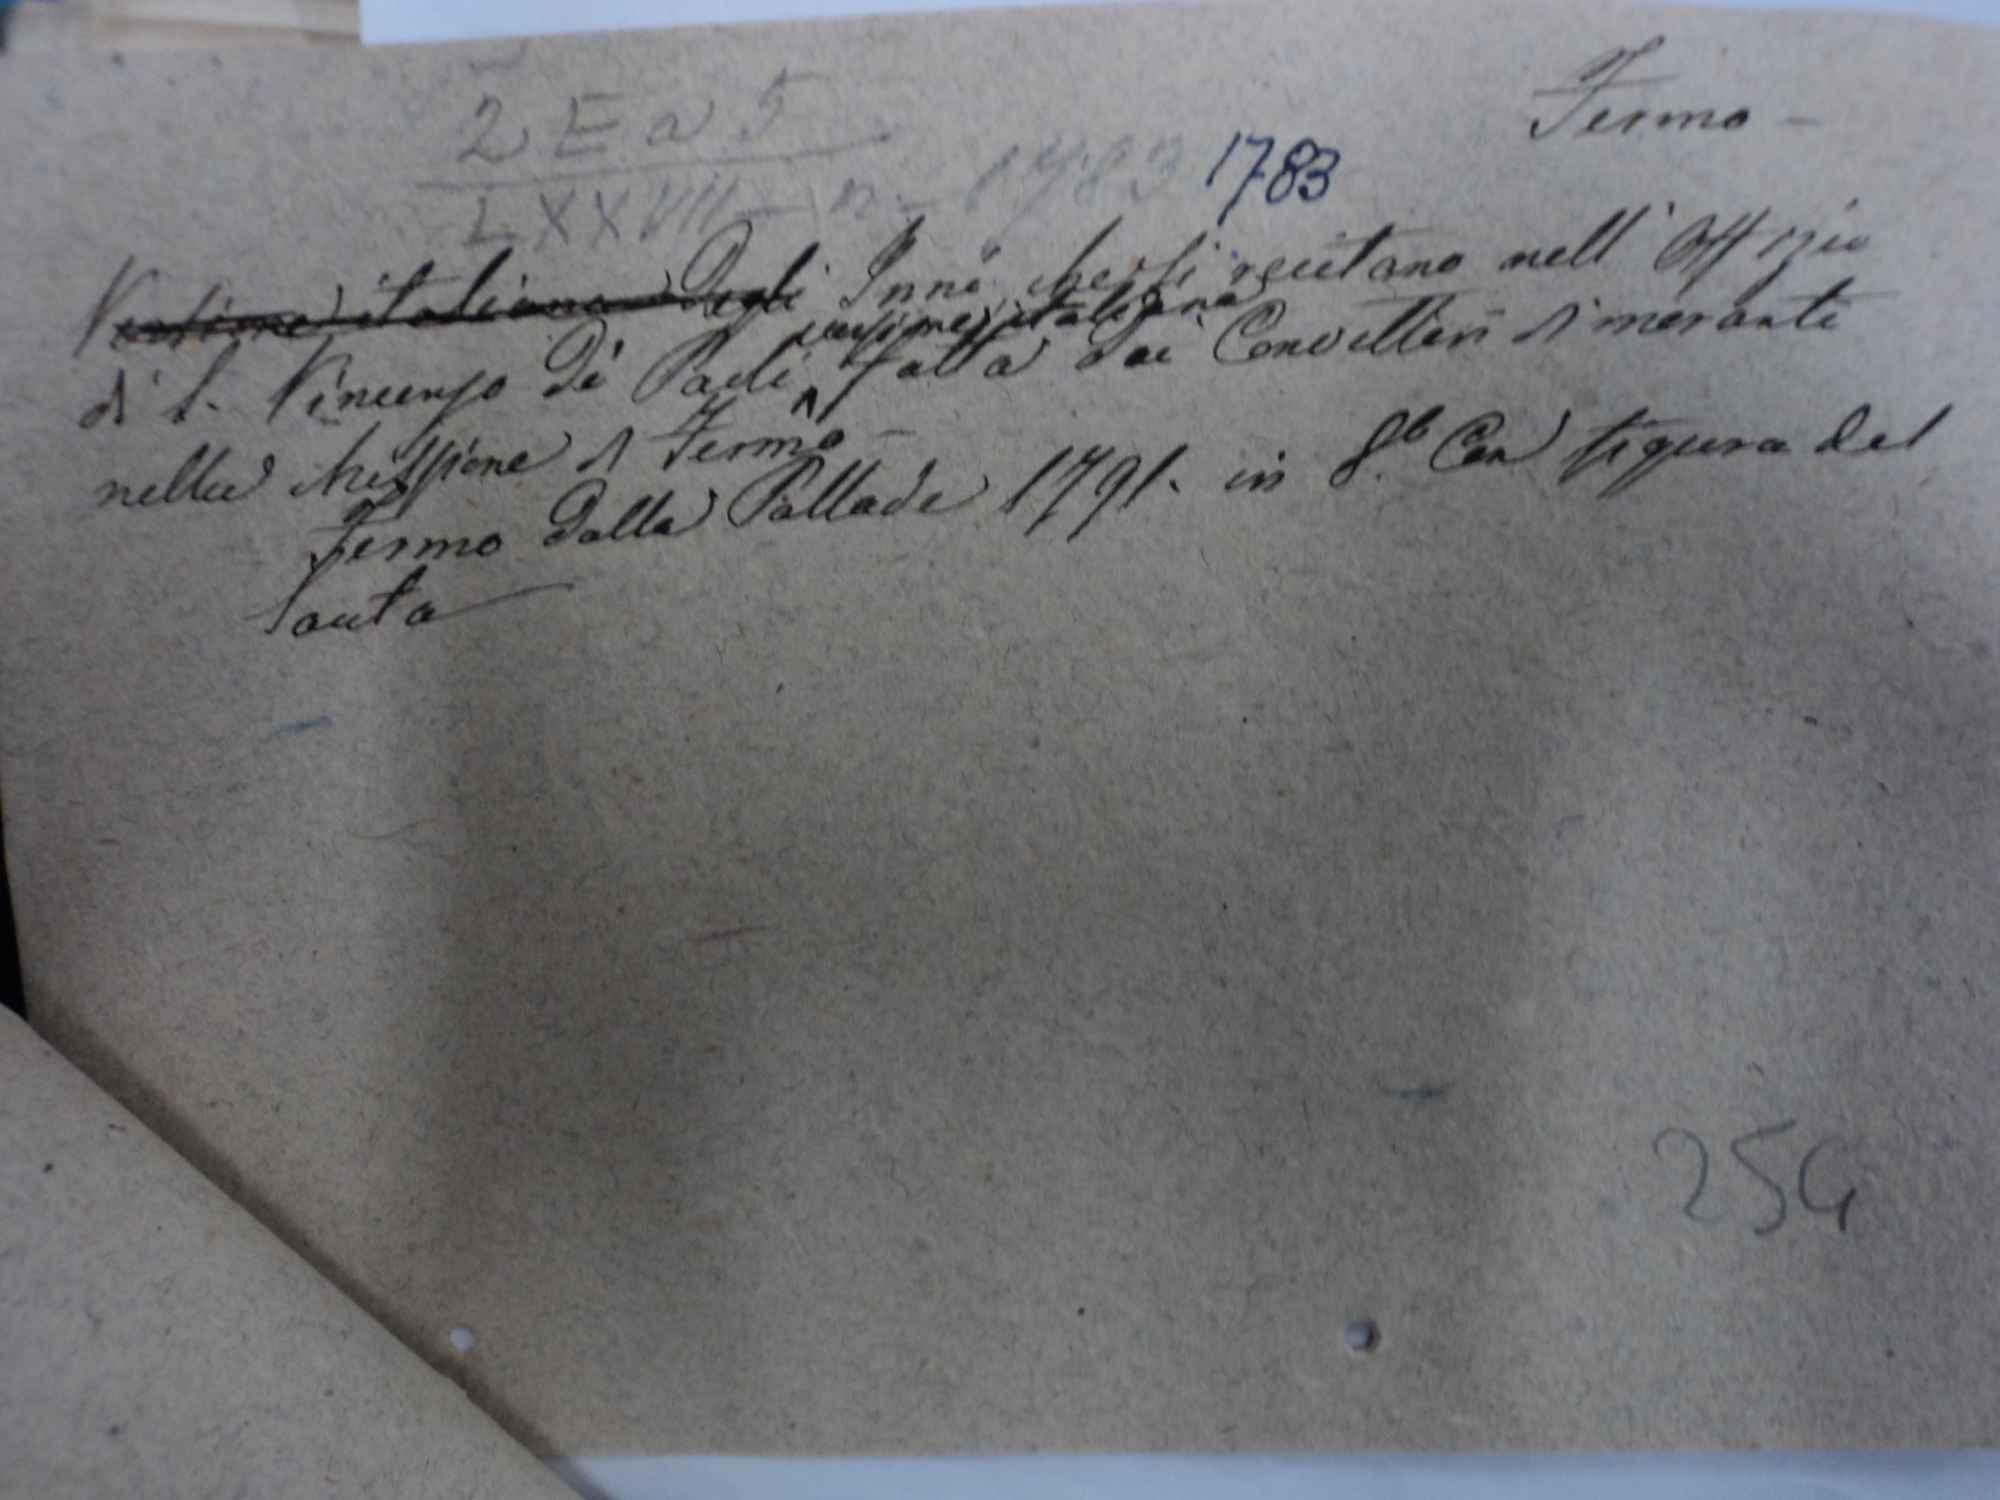 Fermo -
2 E a 5
LXXVIII - n - 1783 1783
Versione italiana degli Inni che si recitano nell' Offizio
versione italiana
di S. Vincenzo de Paoli fatta dai Convittori dimoranti
nella Missione di Fermo -
Fermo dalla Pallade 1791. in 8.° Con figura del
Santo
254